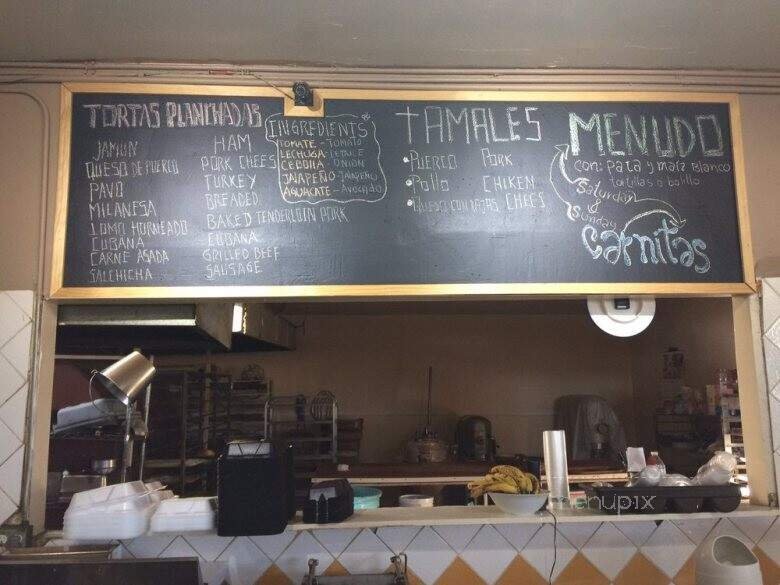 TORTAS PLANCHADAS
JAMON HAM
QUESO DE PUERCO PORK CHEES
PAVO TURKEY
MILANESA BREADED
LOMO HORNEADO BAKED TENDERLOIN PORK
CUBANA CUBANA
CARNE ASADA GRILLED BEEF
SALCHICHA SAUSAGE
INGREDIENTS
TOMATE - TOMATO
LECHUGA - LETUCE
CEBOLLA - ONION
JALAPEÑO - JALAPEÑO
AGUACATE - AVOCADO
TAMALES
• PUERCO PORK
• Pollo CHIKEN
• QUESO CON RAJAS CHEES
MENUDO
con: pata y maiz blanco
tortillas o bolillo
Saturday
&
Sunday
Carnitas
menupix